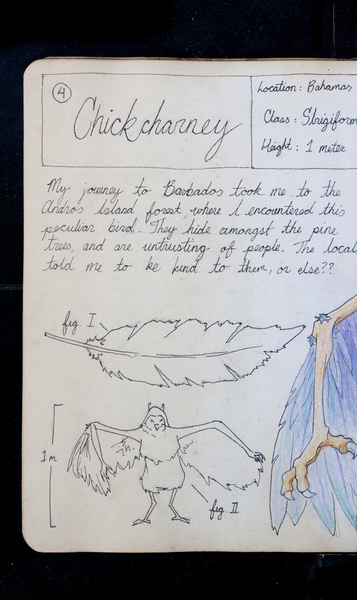 4
Chickcharney
Location: Bahamas
Class: Strigiform
Height: 1 meter
My journey to Barbados took me to the
Andros Island forest, where I encountered this
peculiar bird. They hide amongst the pine
trees, and are untrusting of people. The local
told me to be kind to them, or else??
fig. I
1m
fig. II